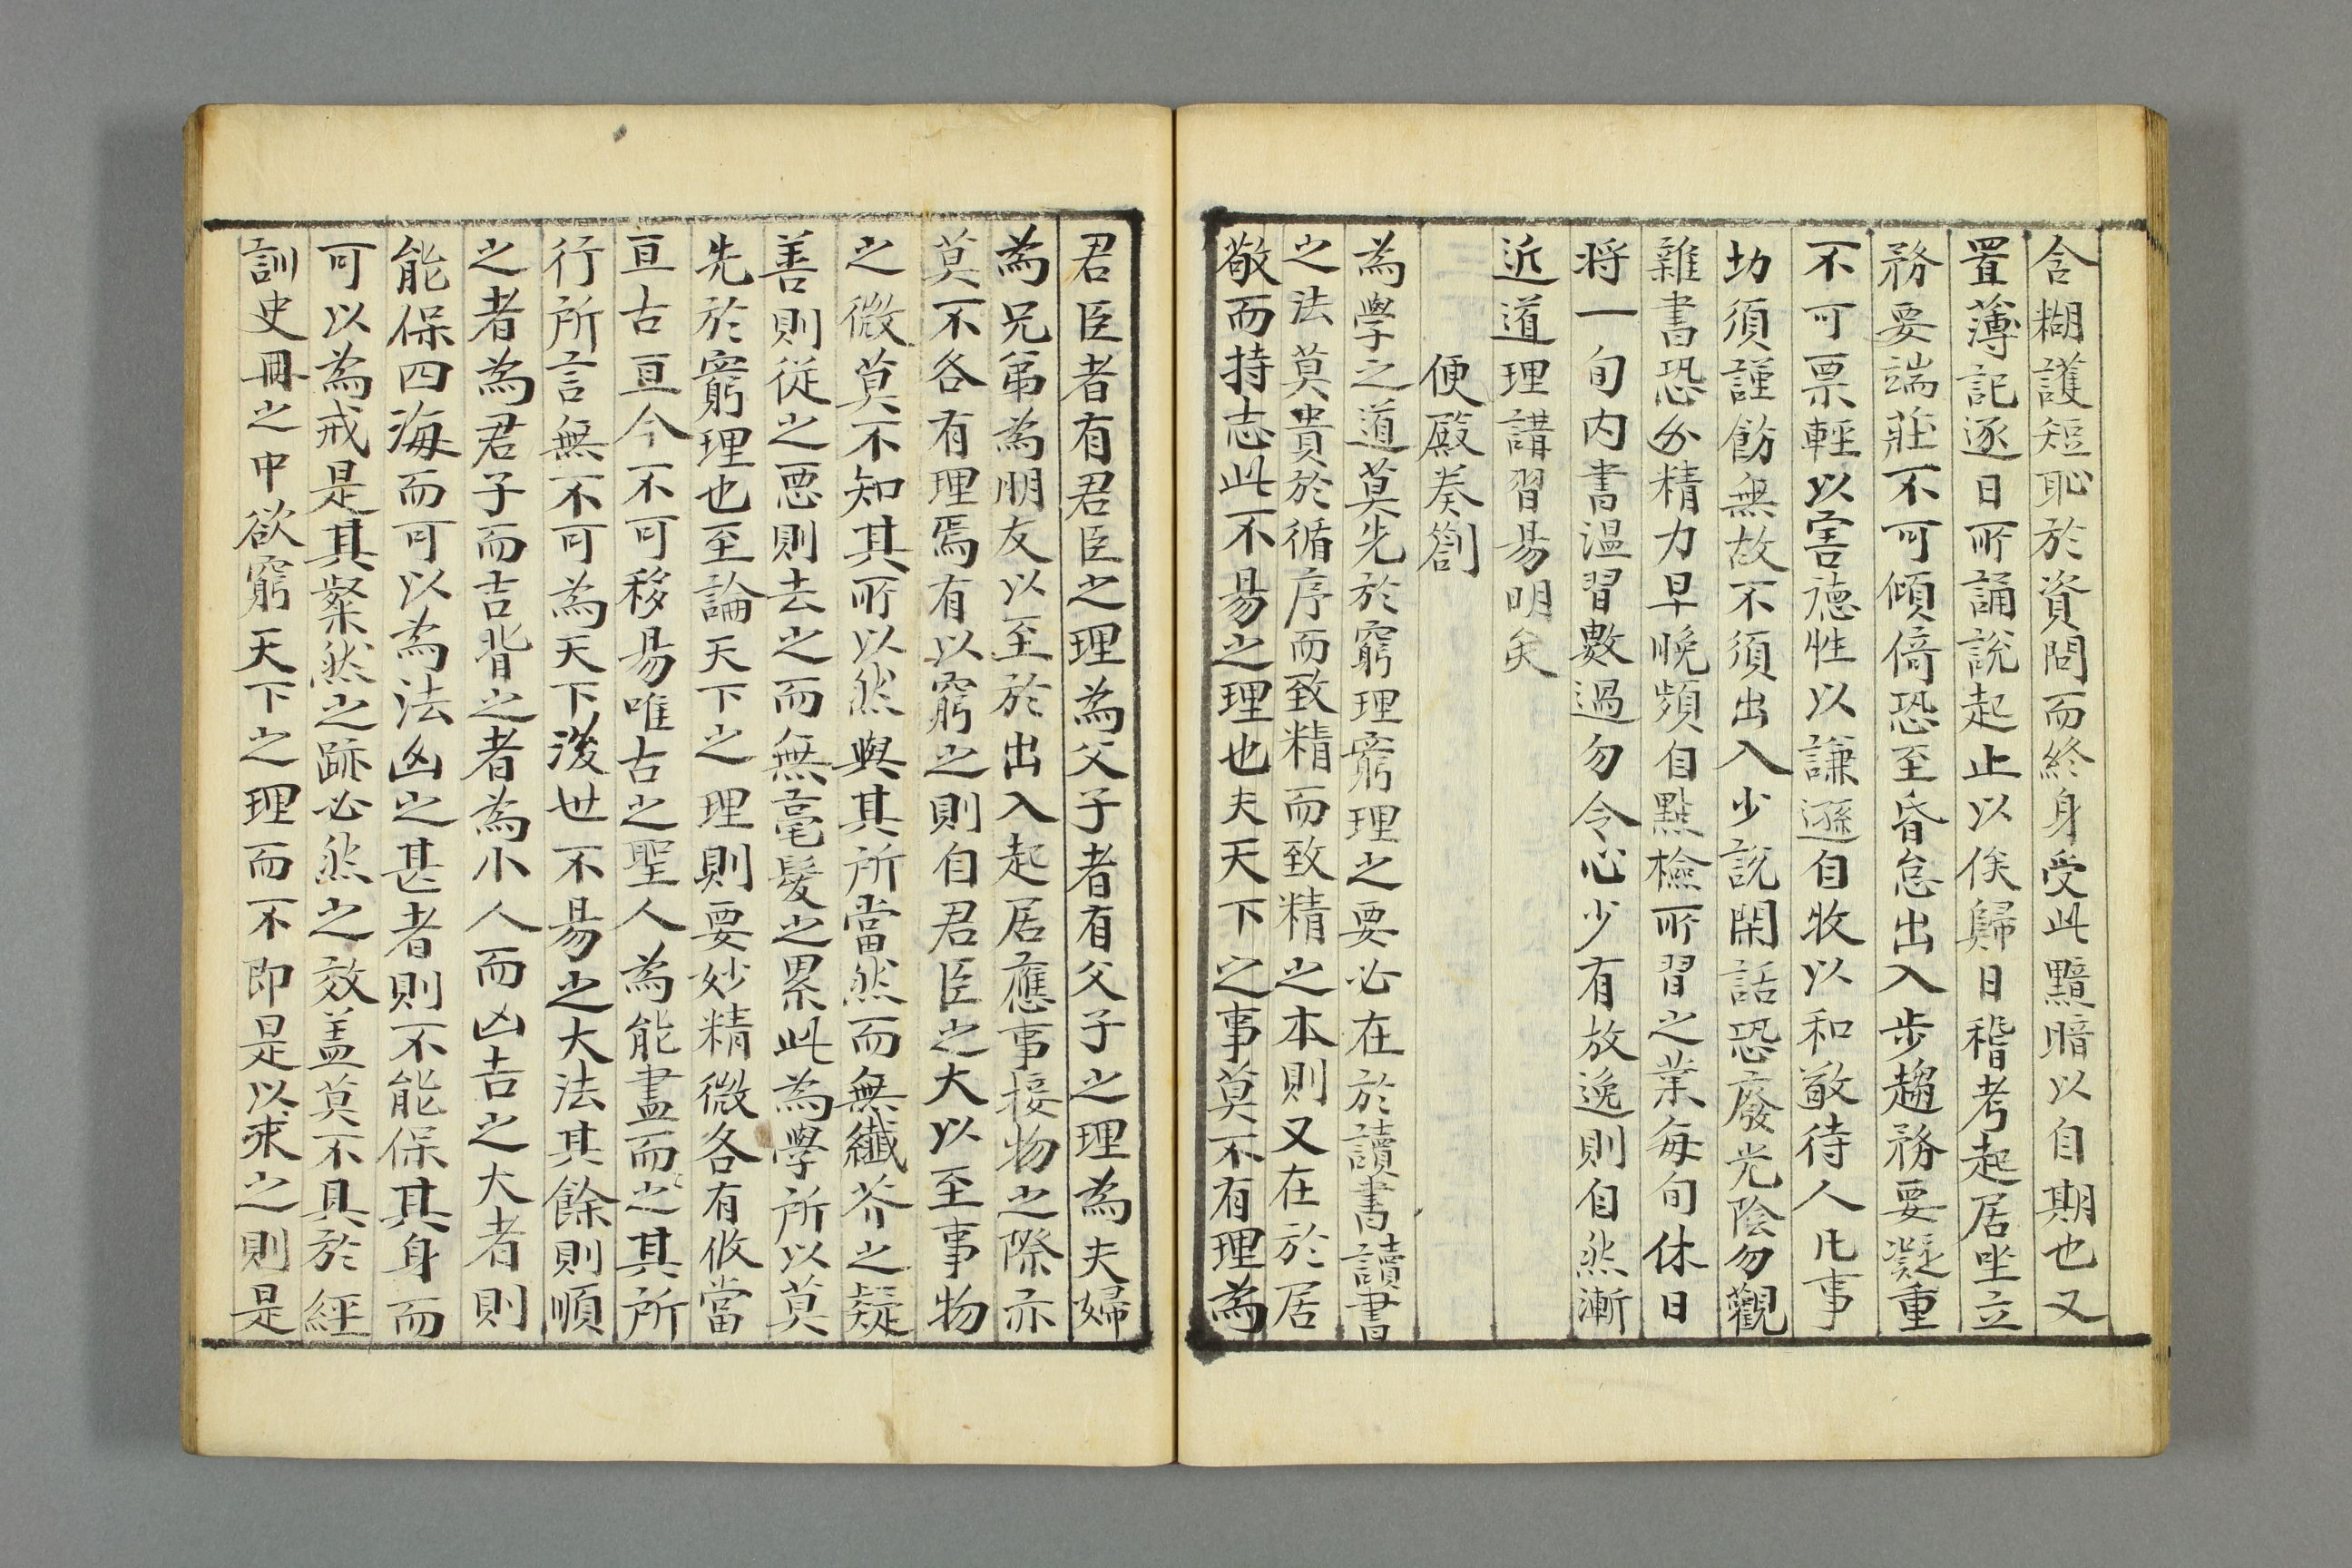 含糊護短恥於資問而終身受此黯暗以自期也又
置薄記逐日所誦說起止以俟歸日稽考起居坐立
務要端莊不可傾倚恐至昏怠出入步趨務要凝重
不可票輕以害德性以謙遜自牧以和敬待人凡事
切須謹飭無故不須出入少說閑話恐廢光陰勿觀
雜書恐分精力早晚頻自點檢所習之業每旬休日
将一旬内書温習數過勿令心少有放逸則自然漸
近道理講習易明矣
便殿奏劄
為學之道莫先於窮理窮理之要必在於讀書讀書
之法莫貴於循序而致精而致精之本則又在於居
敬而持志此不易之理也夫天下之事莫不有理為
君臣者有君臣之理為父子者有父子之理為夫婦
為兄弟為朋友以至於出入起居應事接物之際亦
莫不各有理焉有以窮之則自君臣之大以至事物
之微莫不知其所以然與其所當然而無纖芥之疑
善則從之惡則去之而無毫髮之累此為學所以莫
先於窮理也至論天下之理則要妙精微各有攸當
亘古亘今不可移易唯古之聖人為能盡而之其所
行所言無不可為天下後世不易之大法其餘則順
之者為君子而吉背之者為小人而凶吉之大者則
能保四海而可以為法凶之甚者則不能保其身而
可以為戒是其粲然之跡必然之效盖莫不具於經
訓史冊之中欲窮天下之理而不即是以求之則是